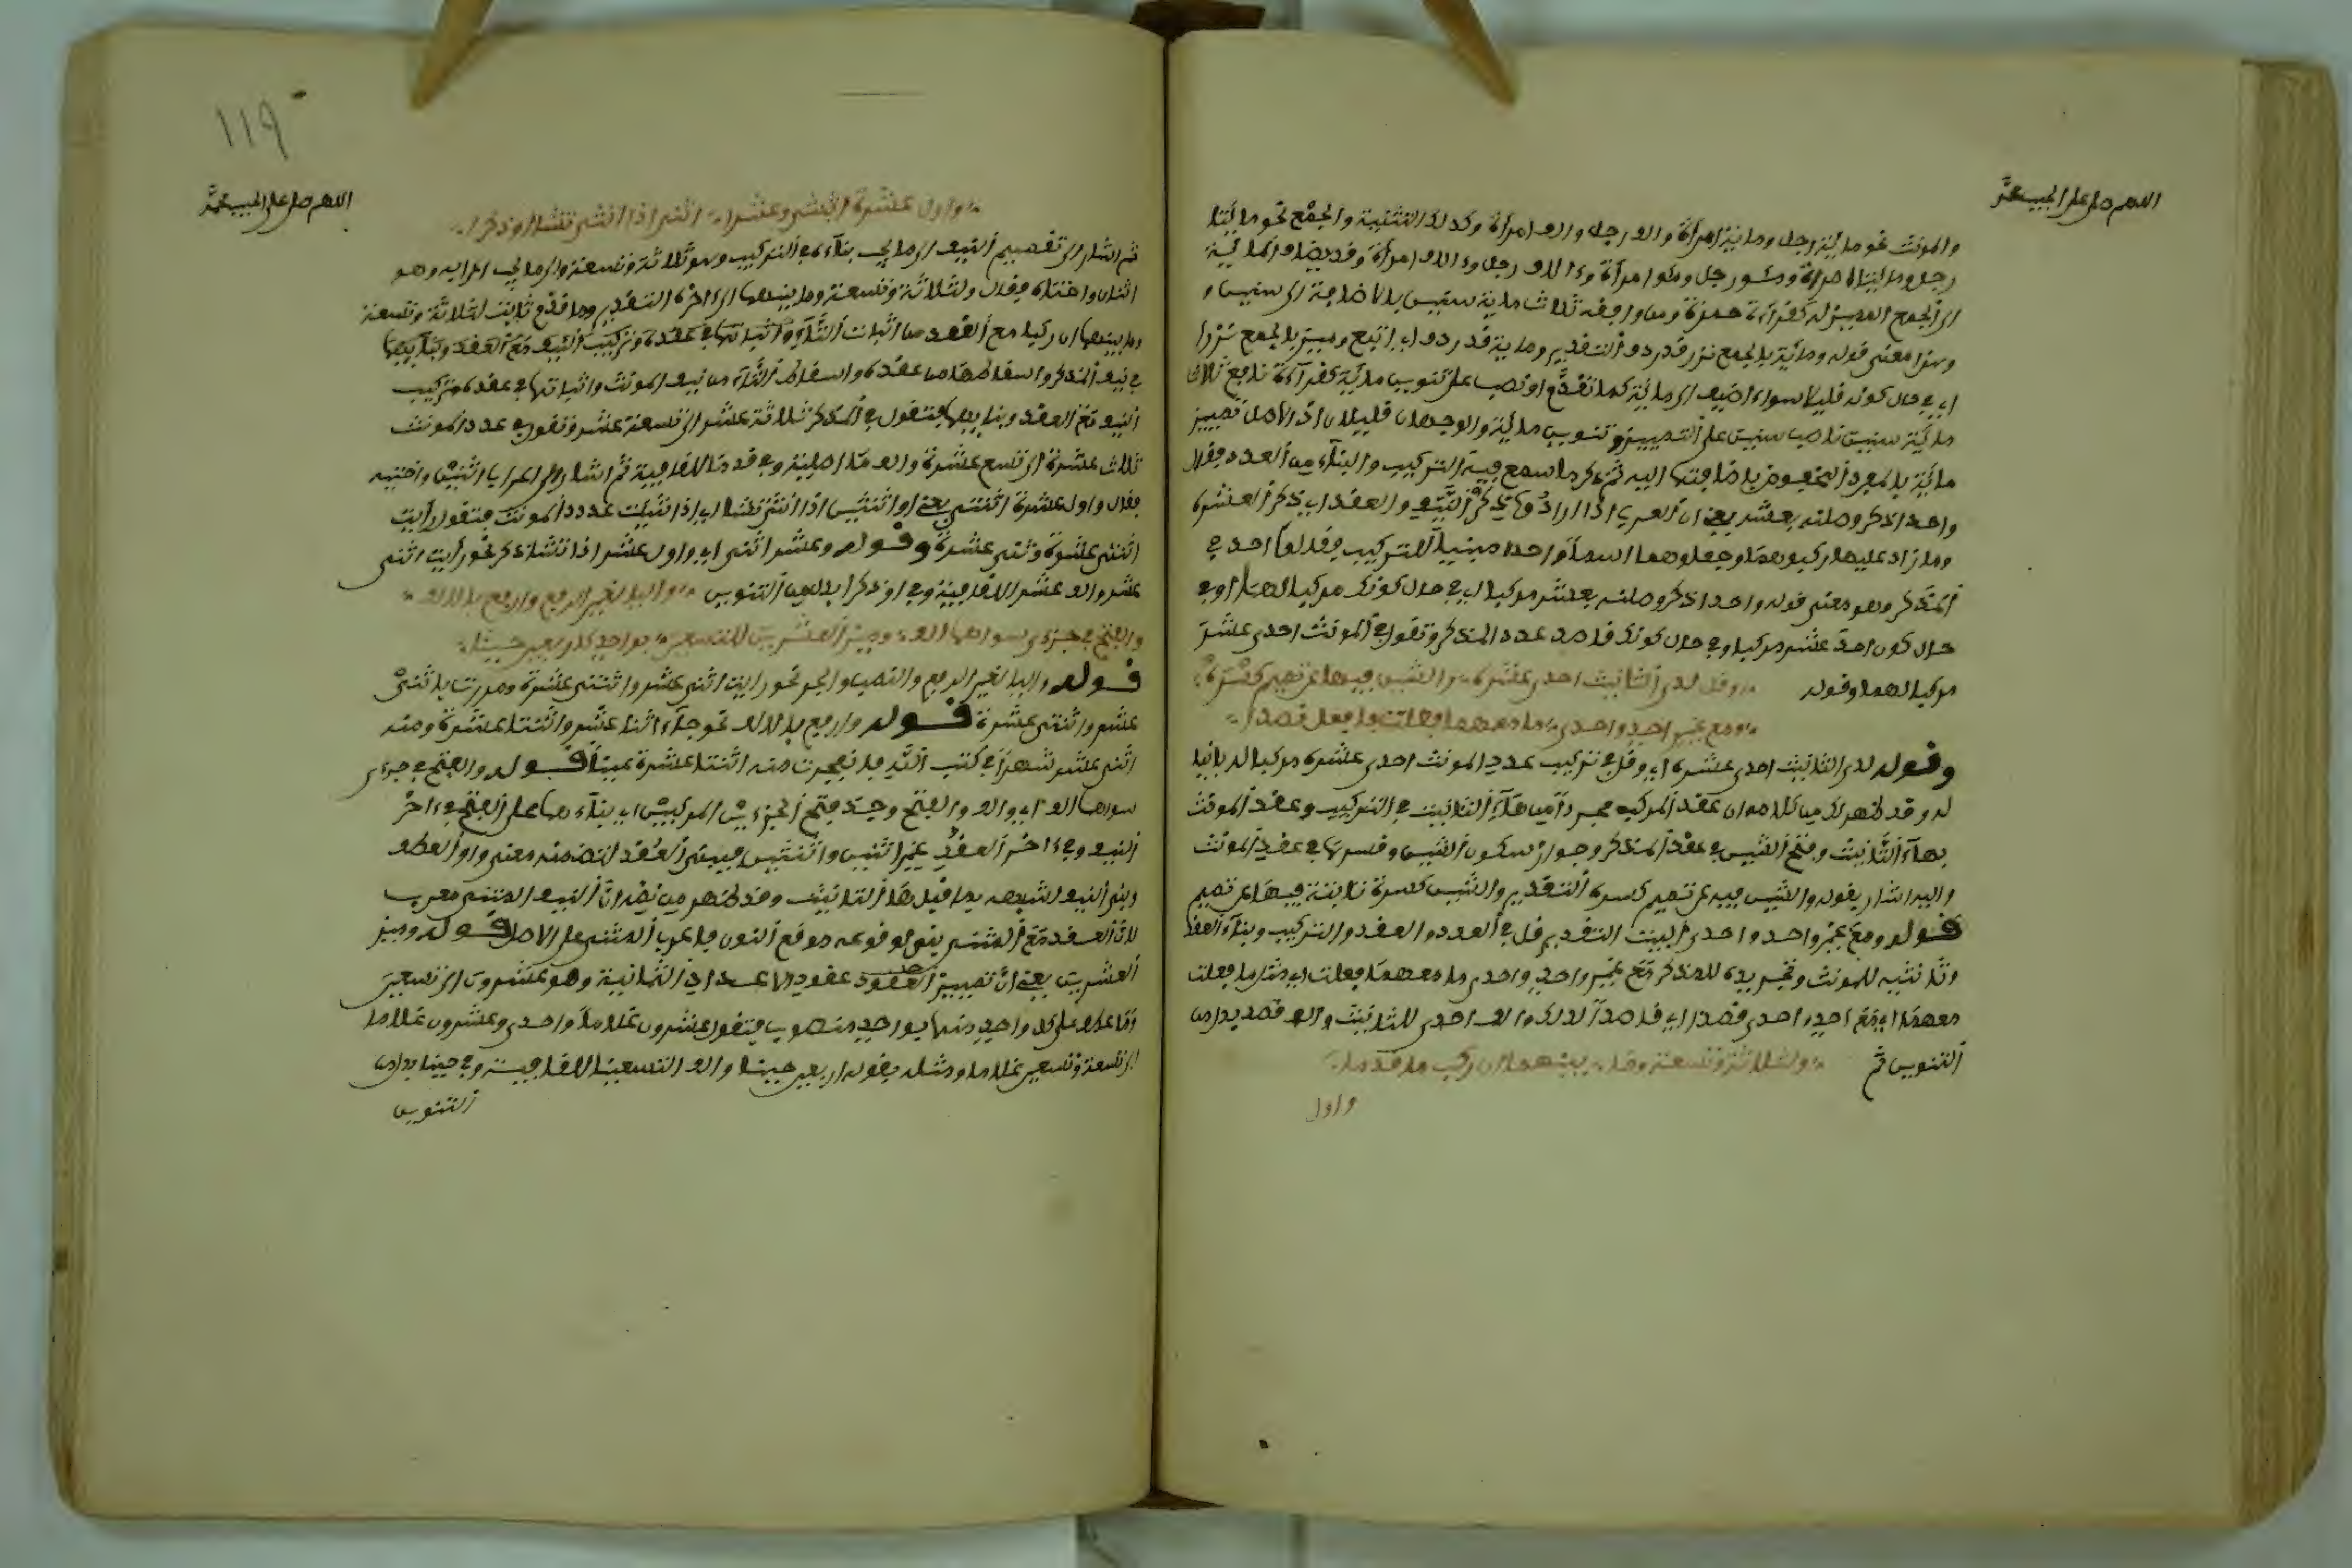 اللهم صل على الحبيب محمد
والمونث نحو مائة رجل ومائة امرأة والف رجل والف امرأة وكذلك التثنية والجمع نحو مائتا
رجل ومائتا امرأة ومئو رجل ومئو امرأة وءالاف رجل وءالاف امرأة وقد يضاف المائة
الى الجمع المميز له كقراءة حمزة ومن وافقه ثلاث مائة سنين بالاضافة الى سنين و
وهذا معنى قوله ومائة بالجمع نزر قد ردف التقدير ومائة قد ردف اي اتبع وميز بالجمع نزرا
اي في حال كونه قليلا سواء اضيف الى مائة كما تقدم او نصب على تنوين مائة كقراءة نافع ثلاث
مائة سنين ناصب سنين على التمييز وتنوين مائة والوجهان قليلان اذ الاصل تمييز
مائة بالمفرد المخفوض باضافتها اليه ثم ذكر ما سمع فيه التركيب والبناء من العدد فقال
واحد اذكر وصلنه بعشر يعني ان العرب اذا ارادوا ذكر النيف والعقد اي ذكر العشرة
وما زاد عليها ركبوهما وجعلوهما اسما واحدا مبنيا للتركيب فقالوا احد في
المذكر وهو معنى قوله واحد اذكر وصلنه بعشر مركبا اي في حال كونك مركبا لهما او في
حال كون احد عشر مركبا وفي حال كونك قاصد عدد المذكر وتقول في المونث احدى عشر
مركبا لهما وقوله وقل لدى التانيث احدى عشره والشين فيها عن تميم كسره
ومع غير احد واحدى ما معهما فعلت فافعل قصدا
وقوله لدى التانيث احدى عشره اي وقل في تركيب عدد المونث احدى عشرة مركبا له بانيا
له وقد ظهر لك من كلامه ان عقد المركب مجردا من هاء التانيث في التركيب وعقد المونث
بهاء التانيث وفتح الشين في عقد المذكر وجواز سكون الشين وكسرها في عقد المونث
واليه اشار بقوله والشين فيه عن تميم كسره التقدير والشين كسرة ثابتة فيها عن تميم
قوله ومع غير واحد واحدى البيت التقدير قل في العدد والعقد والتركيب وبناء العقد
وتانيثه للمونث وتجريده للمذكر مع غير واحد واحدى ما معهما فعلت اي مثل ما فعلت
معهما اي مع احد واحدى قصدا اي قاصدا لذلك والف احدى للتانيث والف قصد بدل من
التنوين ثم ولثلاثة وتسعة وما بينهما ان ركبا ما قدما
واول
١١٩
اللهم صل على الحبيب محمد
واول عشرة اثنتي وعشرا اثني اذا انثى تشا او ذكرا
ثم اشار الى تقسيم النيف الى ما يجب بناءه في التركيب وهو ثلاثة وتسعة والى ما يجب اعرابه وهو
اثنان واختاه فقال ولثلاثة وتسعة وما بينهما الى ءاخره التقدير وما قدم ثابت لثلاثة وتسعة
وما بينهما ان ركبا مع العقد من اثبات التاء واثباتها في عقده وتركيب النيف مع العقد وبناءيهما
في نيف المذكر واسقاطها من عقده واسقاط التاء من نيف المونث واثباتها في عقده وتركيب
النيف مع العقد وبناءيهما فتقول في المذكر ثلاثة عشر الى تسعة عشر وتقول في عدد المونث
ثلاث عشرة الى تسع عشرة والف ما اصلية وفي قدما للقافية ثم اشار الى اعراب اثنين واختيه
فقال واول عشرة اثنتي يعني او اثنتين اذا انثى تشا اي اذا اثبت عدد المونث فتقول رأيت
اثنتي عشرة وثنتي عشرة وقوله وعشر اثني اي واول عشر اذا تشا ذكر نحو رأيت اثني
عشر والف عشر للقافية وفي او ذكرا بدل من التنوين واليا لغير الرفع وارفع بالالف
والفتح في جزءى سواهما الف وميز العشرين للتسعين بواحد كاربعين حينا
قوله واليا لغير الرفع والنصب والجر نحو رايت اثني عشر واثنتي عشرة ومررت باثني
عشر واثنتي عشرة قوله وارفع بالالف نحو جاء اثنا عشر واثنتا عشرة ومنه
اثني عشر شهرا في كتب الله فانفجرت منه اثنتا عشرة عينا قوله والفتح في جزءي
سواهما الف اي والف والفتح وجد فتح الجزءين المركبين اي بناءهما على الفتح في ءاخر
النيف وفي ءاخر العقد غير اثنين واثنتين فيبنى العقد لتضمنه معنى واو العطف
وبني النيف لشبهه بما قبل هاء التانيث وقد ظهر من نصه ان النيف المثنى معرب
لان العقد مع المثنى ينبى لوقوعه موقع النون فاعرب المثنى على الاصل قوله وميز
العشرين يعني ان تمييز العقود عقود الاعداد الثمانية وهو عشرون الى تسعين
وما عطف على كل واحد منها بواحد منصوب فتقول عشرون غلاما واحدى وعشرون غلاما
الى تسعة وتسعين غلاما ومثله بقوله اربعين حينا والف التسعينا للقافية وفي حينا بدل من
التنوين